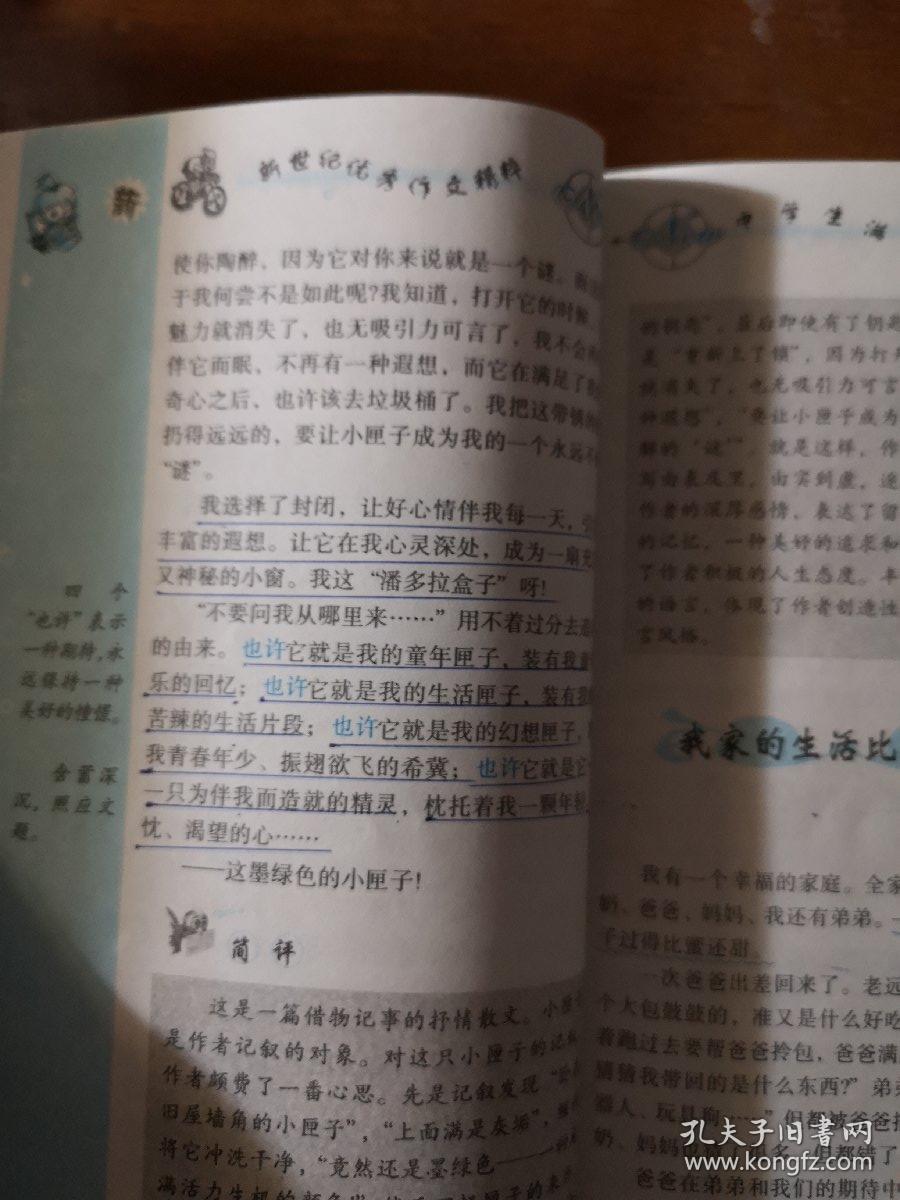 新世纪优秀作文精粹
使你陶醉、因为它对你来说就是一个谜。
于我何尝不是如此呢?我知道，打开它的时候，
魅力就消失了，也无吸引力可言了，我不会
伴它而眠、不再有一种遐想，而它在满足了
奇心之后、也许该去垃圾桶了。我把这带锁
扔得远远的，要让小匣子成为我的一个永远
“谜”。
我选择了封闭，让好心情伴我每一天，
丰富的遐想。让它在我心灵深处，成为一扇充
又神秘的小窗。我这“潘多拉盒子”呀!
“不要问我从哪里来……”用不着过分去
的由来。也许它就是我的童年匣子，装有我
乐的回忆；也许它就是我的生活匣子，装有我
苦辣的生活片段；也许它就是我的幻想匣子，
我青春年少、振翅欲飞的希冀；也许它就是它
一只为伴我而造就的精灵，枕托着我一颗年轻
忱、渴望的心……
——这墨绿色的小匣子!
四个
“也许”表示
一种期待,永
远保持一种
美好的憧憬。
含蓄深
沉，照应文
题。
简评
这是一篇借物记事的抒情散文。小匣
是作者记叙的对象。对这只小匣子的记
作者颇费了一番心思。先是记叙发现“
旧屋墙角的小匣子”，“上面满是灰垢”，
将它冲洗干净，“竟然还是墨绿色——
满活力生机的颜色
中学生
的钥匙”，最后即使有了钥匙
是“重新上了锁”，因为打开
就消失了，也无吸引力可言
种遐想”，“要让小匣子成为
解的‘谜’”，就是这样，作
写由表及里，由实到虚，逐
作者的深厚感情，表达了留
的记忆，一种美好的追求和
了作者积极的人生态度。丰
的语言，体现了作者创造性
言风格。
我家的生活比
我有一个幸福的家庭。全家
奶、爸爸、妈妈、我还有弟弟。
子过得比蜜还甜。
一次爸爸出差回来了。老远
个大包鼓鼓的，准又是什么好吃
着跑过去要帮爸爸拎包，爸爸满
猜猜我带回的是什么东西?”弟弟
器人、玩具狗……”但都被爸爸
奶、妈妈
多，但都错了
爸爸在弟弟和我们的期待中
孔夫子旧书网
www.kongfz.com